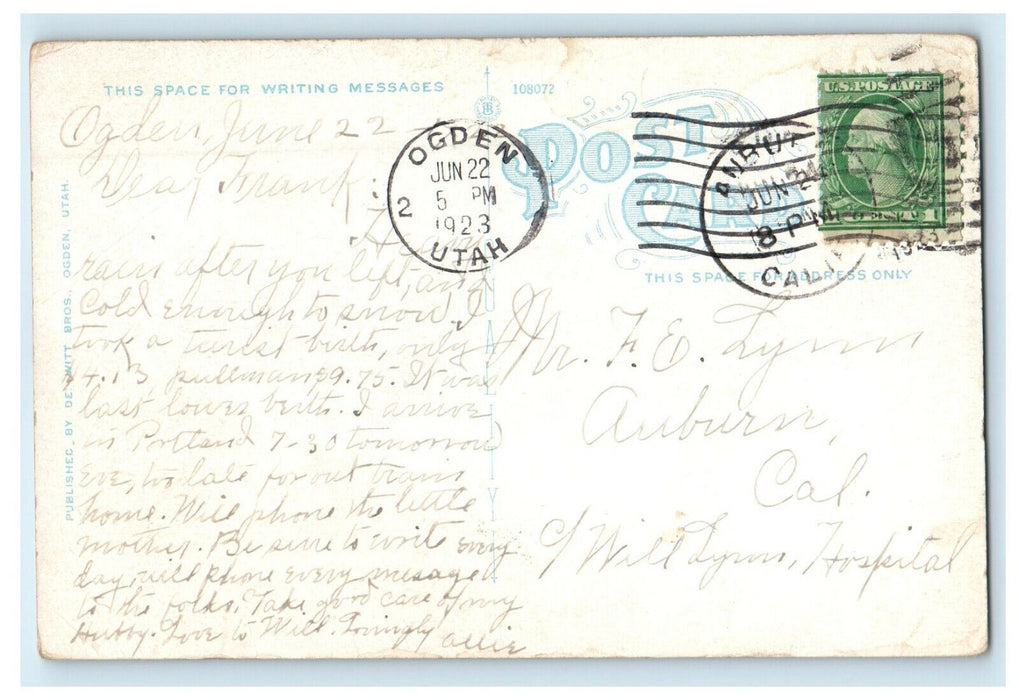 THIS SPACE FOR WRITING MESSAGES
108072
POST CARD
THIS SPACE FOR ADDRESS ONLY
PUBLISHED BY DE WITT BROS., OGDEN, UTAH.
U.S. POSTAGE
1
OGDEN
JUN 22
5 PM
1923
UTAH
2
AUBURN
JUN 24
8 PM
1923
CALIF
Ogden, June 22
Dear Frank:
rain after you left, and
cold enough to snow. I
took a turist birth, only
4.13 pullman $9.75. It was
last lower berth. I arrive
in Portland 7-30 tomorrow
eve, to late for out train
home. Will phone the little
mother. Be sure to write every
day, will phone every message
to the folks. Take good care of my
Hubby. Love to Will. Lovingly
Allie
Mr. F. E. Lynn
Auburn,
Cal.
c/ Will Lynn, Hospital